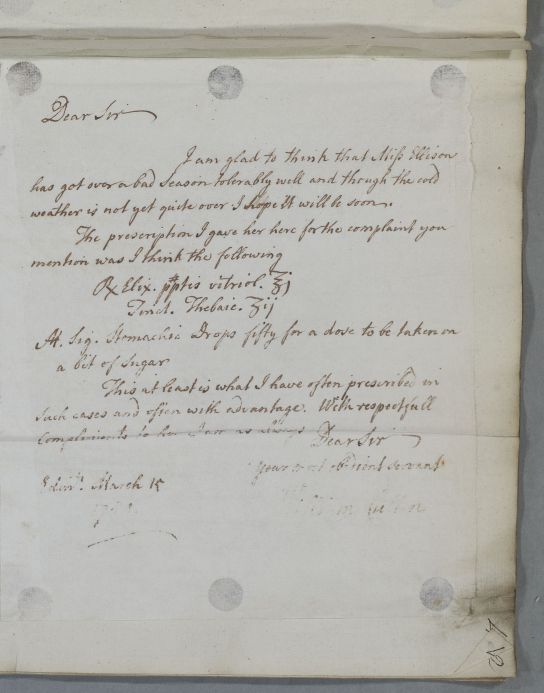 Dear Sir
I am glad to think that Miss Ellison
has got over a bad Season tolerably well and though the cold
weather is not yet quite over I hope it will be soon.
The prescription I gave her here for the complaint you
mention was I think the following
℞ Elix. pptis vitriol. ʒj
Tinct. Thebaic. ʒij
M. Sig. Stomachic Drops fifty for a dose to be taken on
a bit of Sugar
This at least is what I have often prescribed in
such cases and often with advantage. With respectfull
Compliments to her I am as always Dear Sir
your most obedient servant
William Cullen
Edinr. March 15